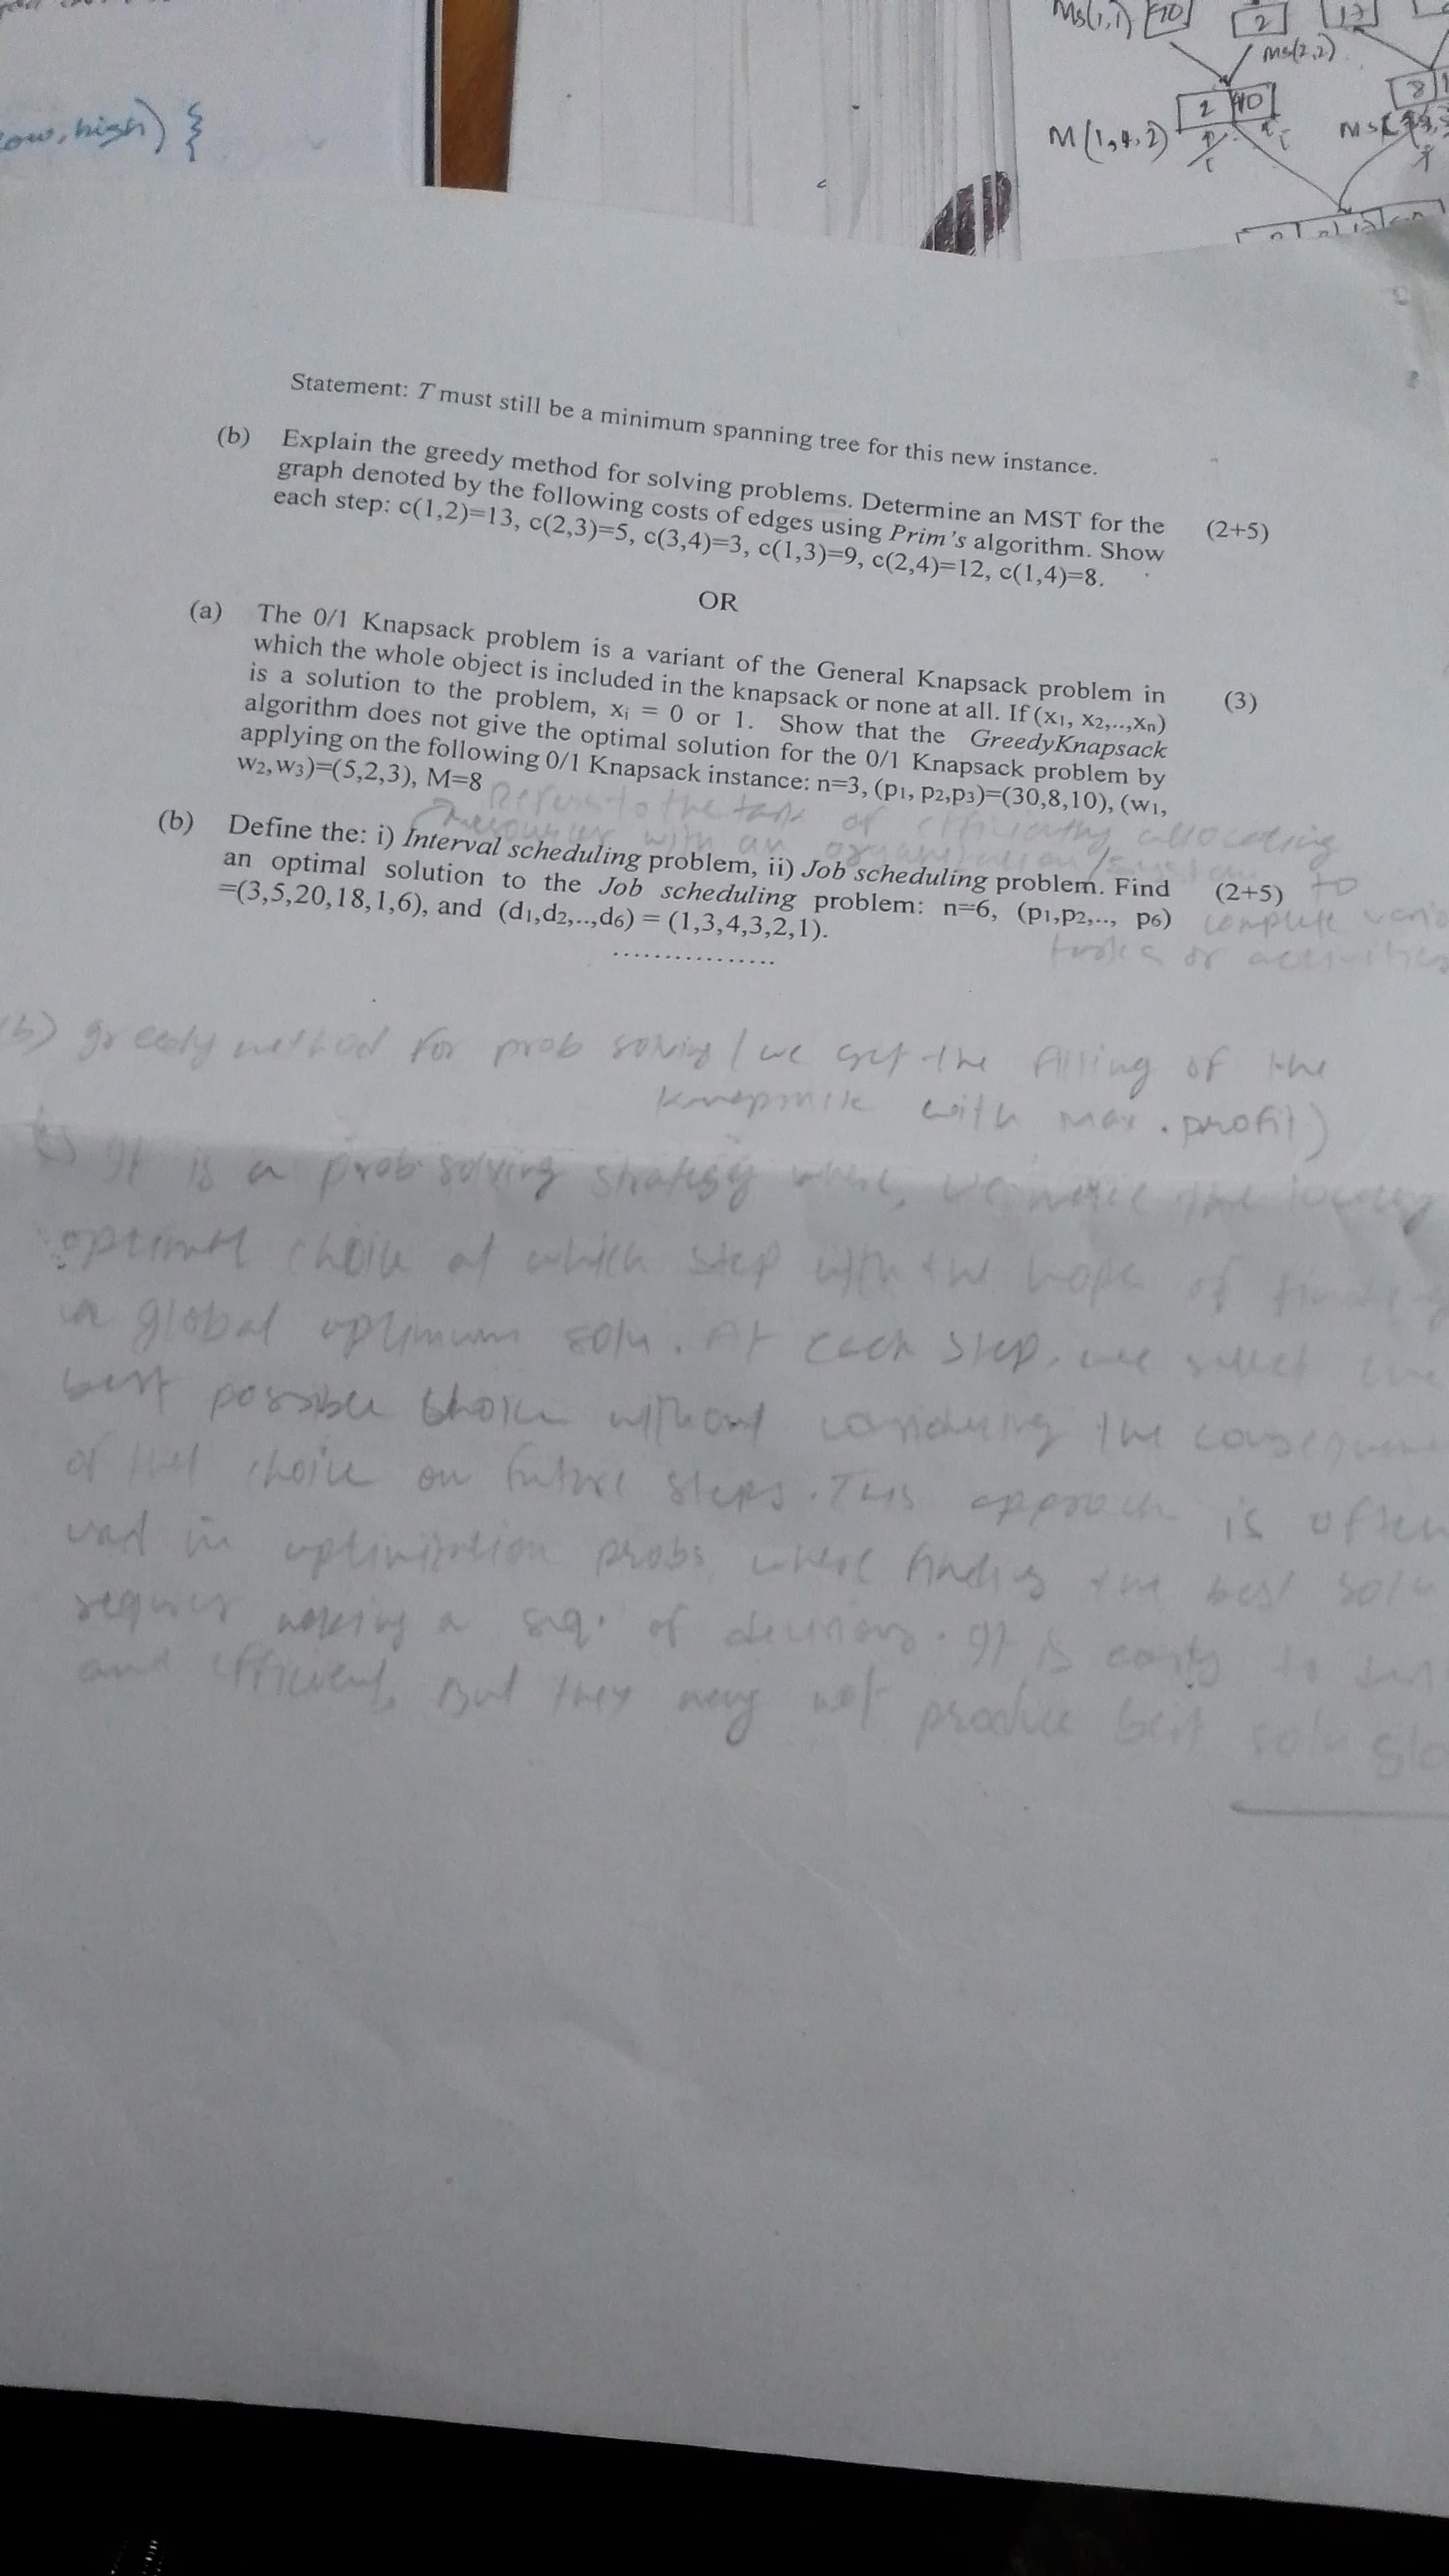 Ms(1,1) 10 2 17
Ms(2,2)
low, high) {
2 10 8
M(1,4,2)
Statement: T must still be a minimum spanning tree for this new instance.
(b) Explain the greedy method for solving problems. Determine an MST for the (2+5)
graph denoted by the following costs of edges using Prim's algorithm. Show
each step: c(1,2)=13, c(2,3)=5, c(3,4)=3, c(1,3)=9, c(2,4)=12, c(1,4)=8.
OR
(a) The 0/1 Knapsack problem is a variant of the General Knapsack problem in (3)
which the whole object is included in the knapsack or none at all. If (x1, x2,..,xn)
is a solution to the problem, xi = 0 or 1. Show that the GreedyKnapsack
algorithm does not give the optimal solution for the 0/1 Knapsack problem by
applying on the following 0/1 Knapsack instance: n=3, (p1, p2,p3)=(30,8,10), (w1,
w2,w3)=(5,2,3), M=8
Refers to the task of efficiently allocating
resources with an organization
(b) Define the: i) Interval scheduling problem, ii) Job scheduling problem. Find (2+5) to
an optimal solution to the Job scheduling problem: n=6, (p1,p2,.., p6) complete
=(3,5,20,18,1,6), and (d1,d2,..,d6) = (1,3,4,3,2,1).
tasks or activities
................
(b) greedy method for prob solving (we get the filling of the
knapsack with max. profit)
It is a prob solving strategy where, we make the
optimal choice at which step with the hope of
a global optimum soln. At each step, we select the
best possible choice without considering the
of that choice on future steps. This approach is often
used in optimization probs where finding the best soln
requires making a seq. of decisions. It is easy to
and efficient, But they may not produce best soln